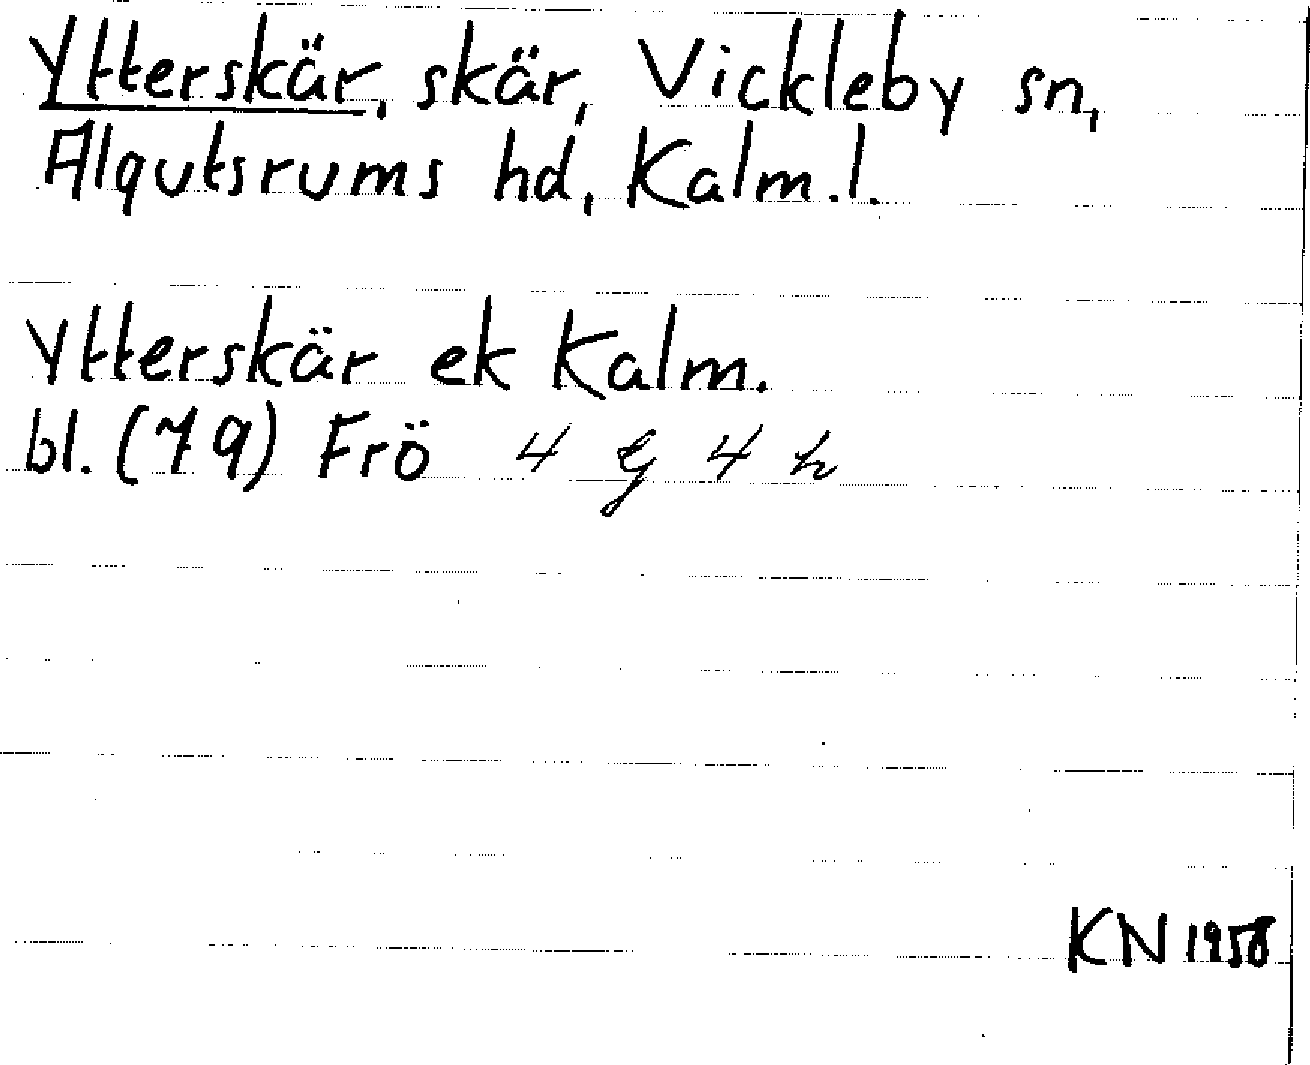 Ytterskär, skär, Vickleby sn,
Algutsrums hd, Kalm.l.
Ytterskär ek Kalm.
bl. (79) Frö 4 g 4 h
KN 1958